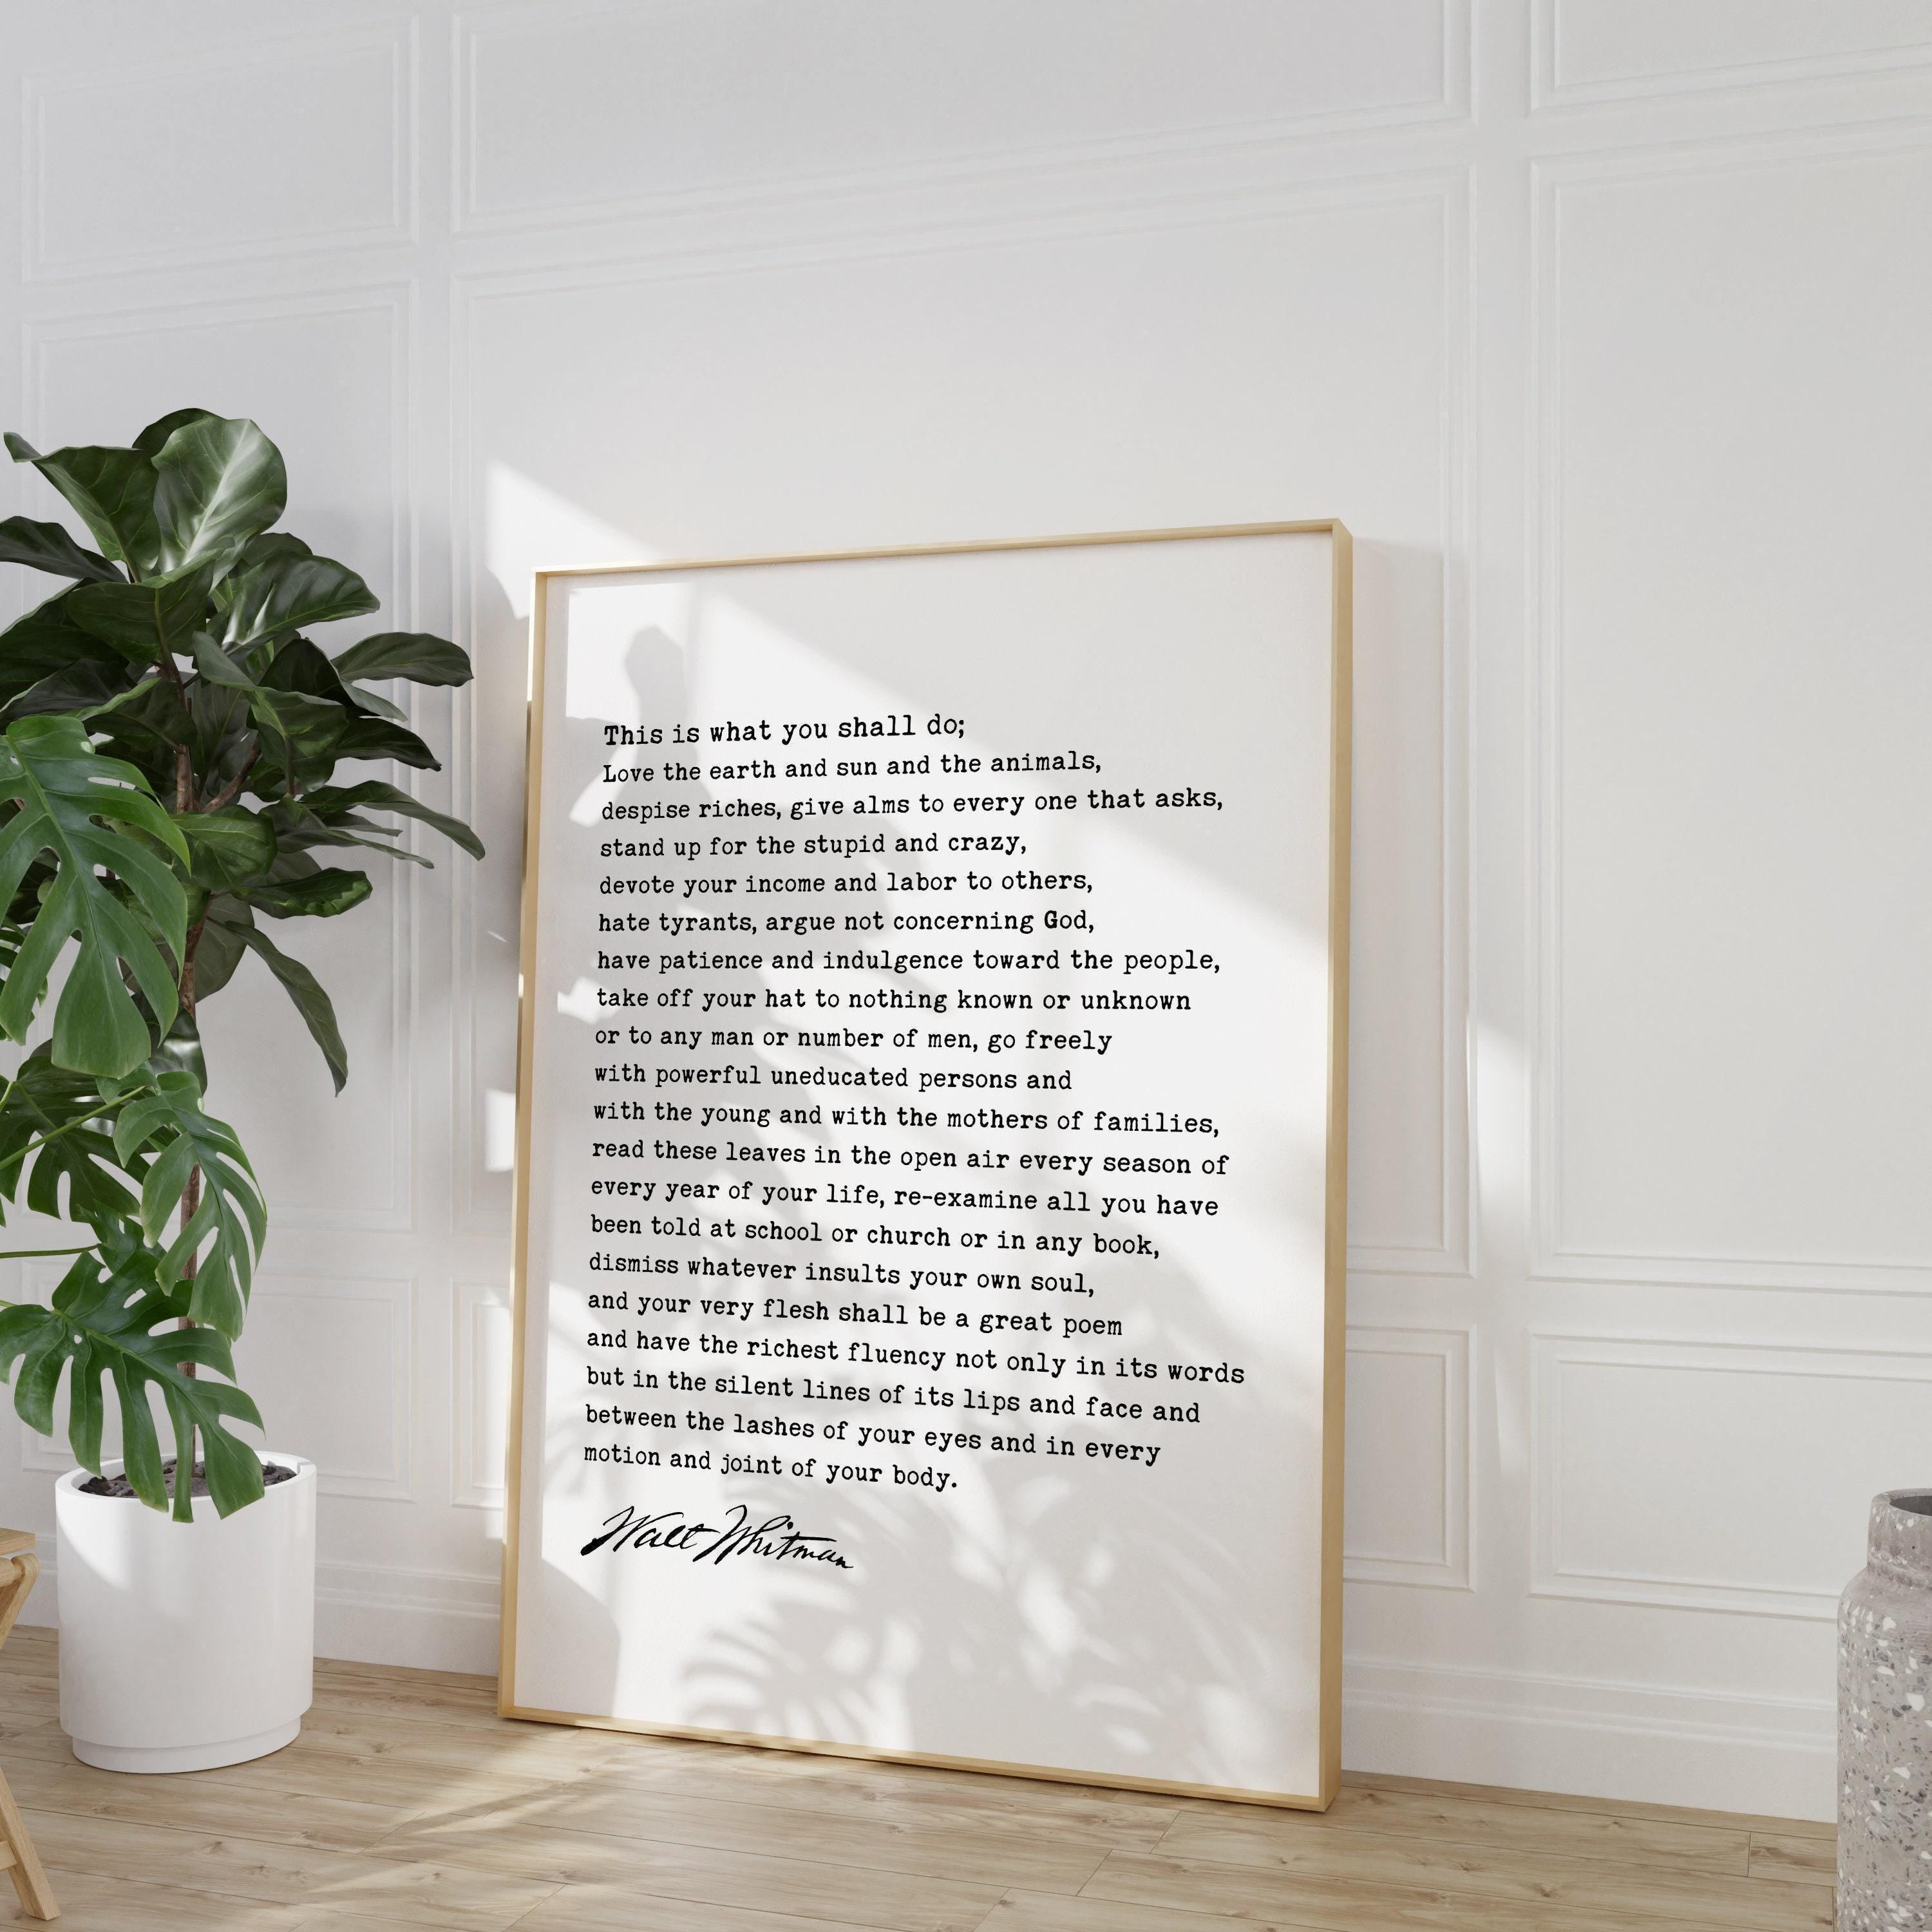 This is what you shall do;
Love the earth and sun and the animals,
despise riches, give alms to every one that asks,
stand up for the stupid and crazy,
devote your income and labor to others,
hate tyrants, argue not concerning God,
have patience and indulgence toward the people,
take off your hat to nothing known or unknown
or to any man or number of men, go freely
with powerful uneducated persons and
with the young and with the mothers of families,
read these leaves in the open air every season of
every year of your life, re-examine all you have
been told at school or church or in any book,
dismiss whatever insults your own soul,
and your very flesh shall be a great poem
and have the richest fluency not only in its words
but in the silent lines of its lips and face and
between the lashes of your eyes and in every
motion and joint of your body.
Walt Whitman